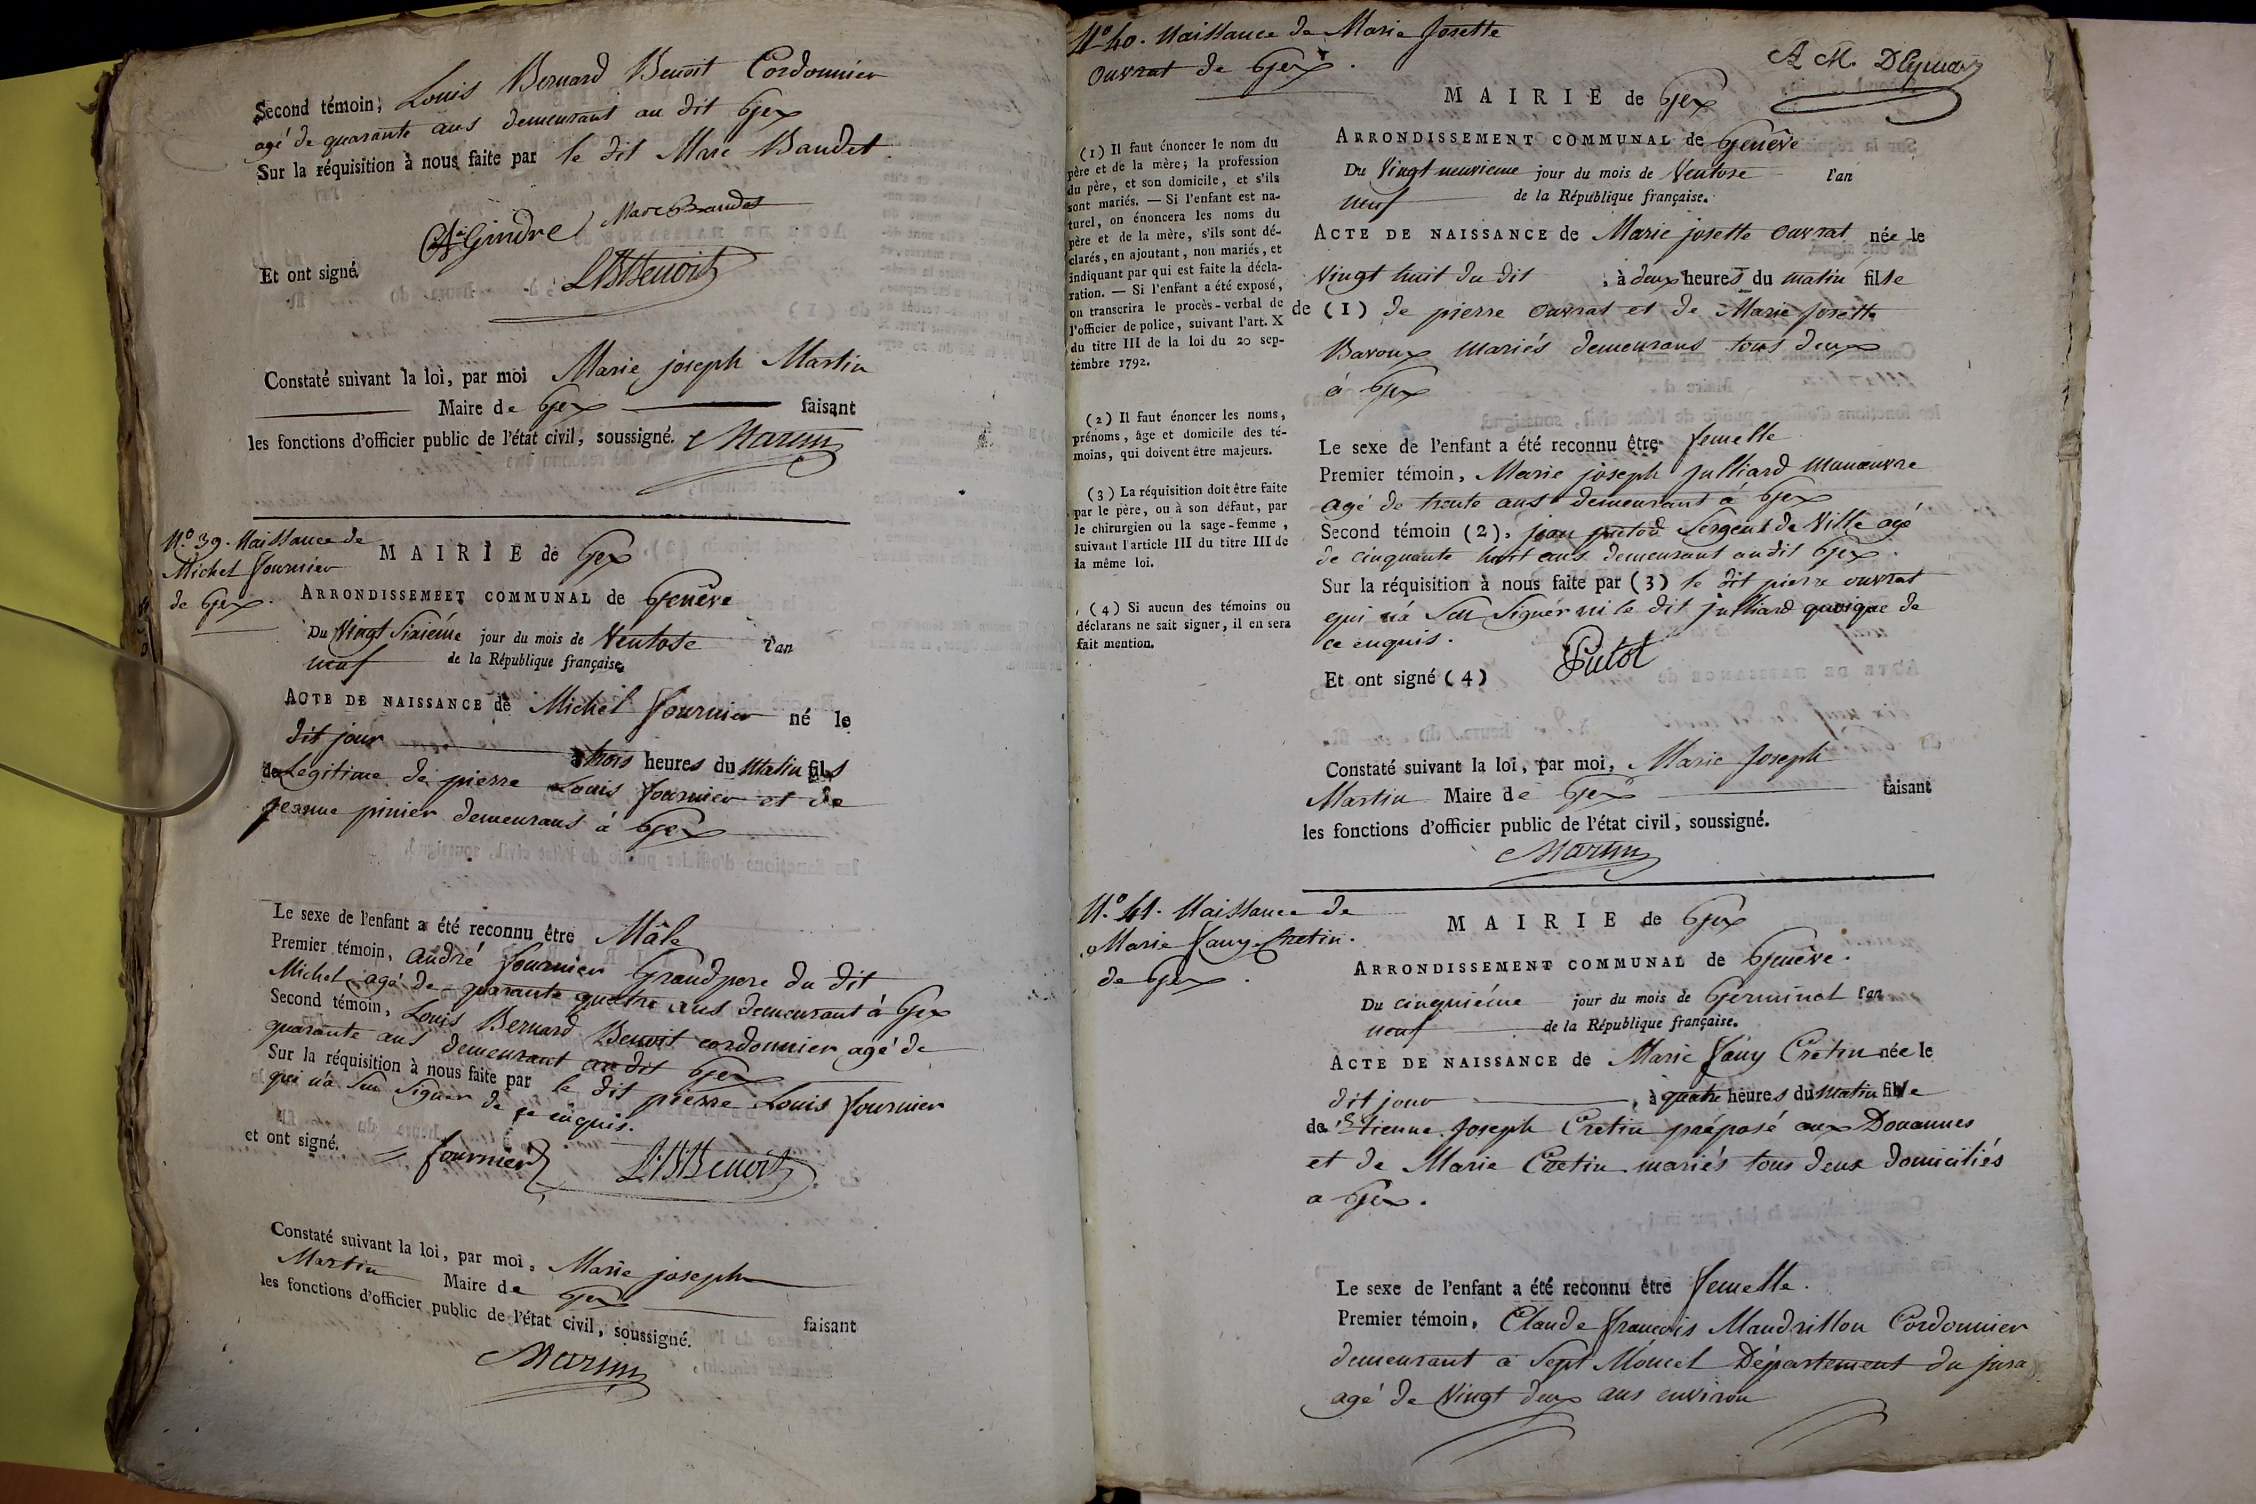 Second témoin, Louis Bernard Benoit Cordonnier
agé de quarante ans demeurant au dit Gex
Sur la réquisition à nous faite par le dit Marc Baudet
Gindre Marc Baudet
Et ont signé. LBBenoit
Constaté suivant la loi, par moi Marie joseph Martin
Maire de Gex faisant
les fonctions d'officier public de l'état civil, soussigné. Martin
N.° 39. Naissance de
Michel fournier
de Gex.
MAIRIE de Gex
ARRONDISSEMEET COMMUNAL de Genêve
Du Vingt Sixiéme jour du mois de Ventose l'an
neuf de la République française.
ACTE DE NAISSANCE de Michel fournier né le
dit jour à trois heures du matin fils
de Legitime de pierre Louis fournier et de
jeanne pinier demeurans à Gex
Le sexe de l'enfant a été reconnu être Mâle
Premier témoin, andré fournier Grandpere du dit
Michel agé de quarante quatre ans demeurant à Gex
Second témoin, Louis Bernard Benoit cordonnier agé de
quarante ans demeurant au dit Gex
Sur la réquisition à nous faite par le dit pierre Louis fournier
qui n'a Su Signer de ce enquis.
et ont signé. fournier LBBenoit
Constaté suivant la loi, par moi, Marie joseph
Martin Maire de Gex faisant
les fonctions d'officier public de l'état civil, soussigné.
Martin
N.° 40. Naissance de Marie Josette
ouvrat de Gex.
A M.
MAIRIE de Gex
ARRONDISSEMENT COMMUNAL de Genêve
Du Vingt neuvieme jour du mois de Ventose l'an
neuf de la République française.
ACTE DE NAISSANCE de Marie josette ouvrat née le
Vingt huit du dit, à deux heures du matin fille
de (1) de pierre ouvrat et de Marie Josette
Baroux mariés demeurans tous deux
à Gex
Le sexe de l'enfant a été reconnu être femelle
Premier témoin, Marie joseph julliard Manœuvre
agé de trente ans demeurant à Gex
Second témoin (2), jean putod Sergent de Ville agé
de cinquante huit ans demeurant au dit Gex.
Sur la réquisition à nous faite par (3) le dit pierre ouvrat
qui n'a Su Signér ni le dit julliard quoique de
ce enquis.
Et ont signé (4) Putot
Constaté suivant la loi, par moi, Marie Joseph
Martin Maire de Gex faisant
les fonctions d'officier public de l'état civil, soussigné.
Martin
(1) Il faut énoncer le nom du
père et de la mère; la profession
du père, et son domicile, et s'ils
sont mariés. — Si l'enfant est na-
turel, on énoncera les noms du
père et de la mère, s'ils sont dé-
clarés, en ajoutant, non mariés, et
indiquant par qui est faite la décla-
ration. — Si l'enfant a été exposé,
on transcrira le procès-verbal de
l'officier de police, suivant l'art. X
du titre III de la loi du 20 sep-
tembre 1792.
(2) Il faut énoncer les noms,
prénoms, âge et domicile des té-
moins, qui doivent être majeurs.
(3) La réquisition doit être faite
par le père, ou à son défaut, par
le chirurgien ou la sage-femme,
suivant l'article III du titre III de
la même loi.
(4) Si aucun des témoins ou
déclarans ne sait signer, il en sera
fait mention.
N.° 41. Naissance de
Marie fany Cretin.
de Gex.
MAIRIE de Gex
ARRONDISSEMENT COMMUNAL de Genêve.
Du cinquiéme jour du mois de Germinal l'an
neuf de la République française.
ACTE DE NAISSANCE de Marie fany Cretin née le
dit jour, à quatre heures du matin fille
de Etienne Joseph Cretin préposé aux Douannes
et de Marie Cretin mariés tous deux domiciliés
a Gex.
Le sexe de l'enfant a été reconnu être femelle.
Premier témoin, Claude françois Mandrillon Cordonnier
demeurant a Sept Moncel Département du jura
agé de Vingt deux ans environ